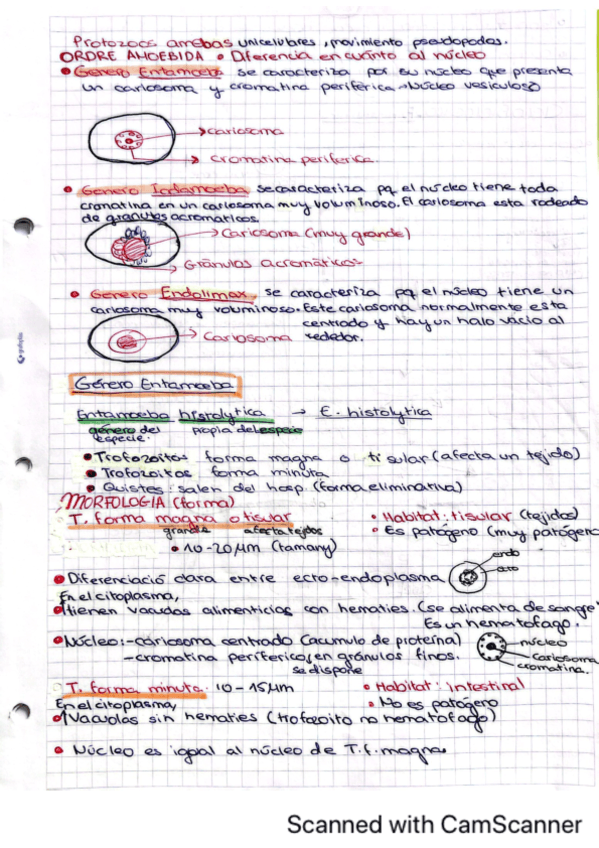 Protozoos amebas unicelulares, movimiento pseudopodos.
ORDRE AMOEBIDA • Diferencia en cuánto al núcleo
• Género Entamoeba se caracteriza por su núcleo que presenta
un cariosoma y cromatina periférica → Núcleo vesiculoso
cariosoma
cromatina periferica.
• Genero Iodamoeba se caracteriza pq el núcleo tiene toda
cromatina en un cariosoma muy voluminoso. El cariosoma esta rodeado
de gránulos acromáticos.
Cariosoma (muy grande)
Gránulos acromáticos
• Genero Endolimax se caracteriza pq el núcleo tiene un
cariosoma muy voluminoso. Este cariosoma normalmente esta
centrado y hay un halo vacio al
rededor.
Cariosoma
Género Entamoeba
Entamoeba histolytica → E. histolytica
género del propia del especie
especie.
• Trofozoitos forma magna o tisular (afecta un tejido)
• Trofozoitos forma minuta
• Quistes: salen del hosp. (forma eliminativa)
MORFOLOGIA (forma)
T. forma magna o tisular • Habitat: tisular (tejidos)
grande afecta tejidos • Es patógeno (muy patógeno
• 10-20μm (tamany)
endo
ecto
• Diferenciació clara entre ecto-endoplasma
En el citoplasma,
• tienen vacuolas alimenticias con hematies. (se alimenta de sangre
Es un hematofago.
• Núcleo: - cariosoma centrado (acumulo de proteína)
- cromatina periferico, en gránulos finos.
se dispone
núcleo
cariosoma
cromatina.
T. forma minuta: 10-15μm • Habitat: Intestinal
En el citoplasma, • No es patógeno
• Vacuolas sin hematies (trofozoito no hematofago)
• Núcleo es igual al núcleo de T.f. magna
Scanned with CamScanner